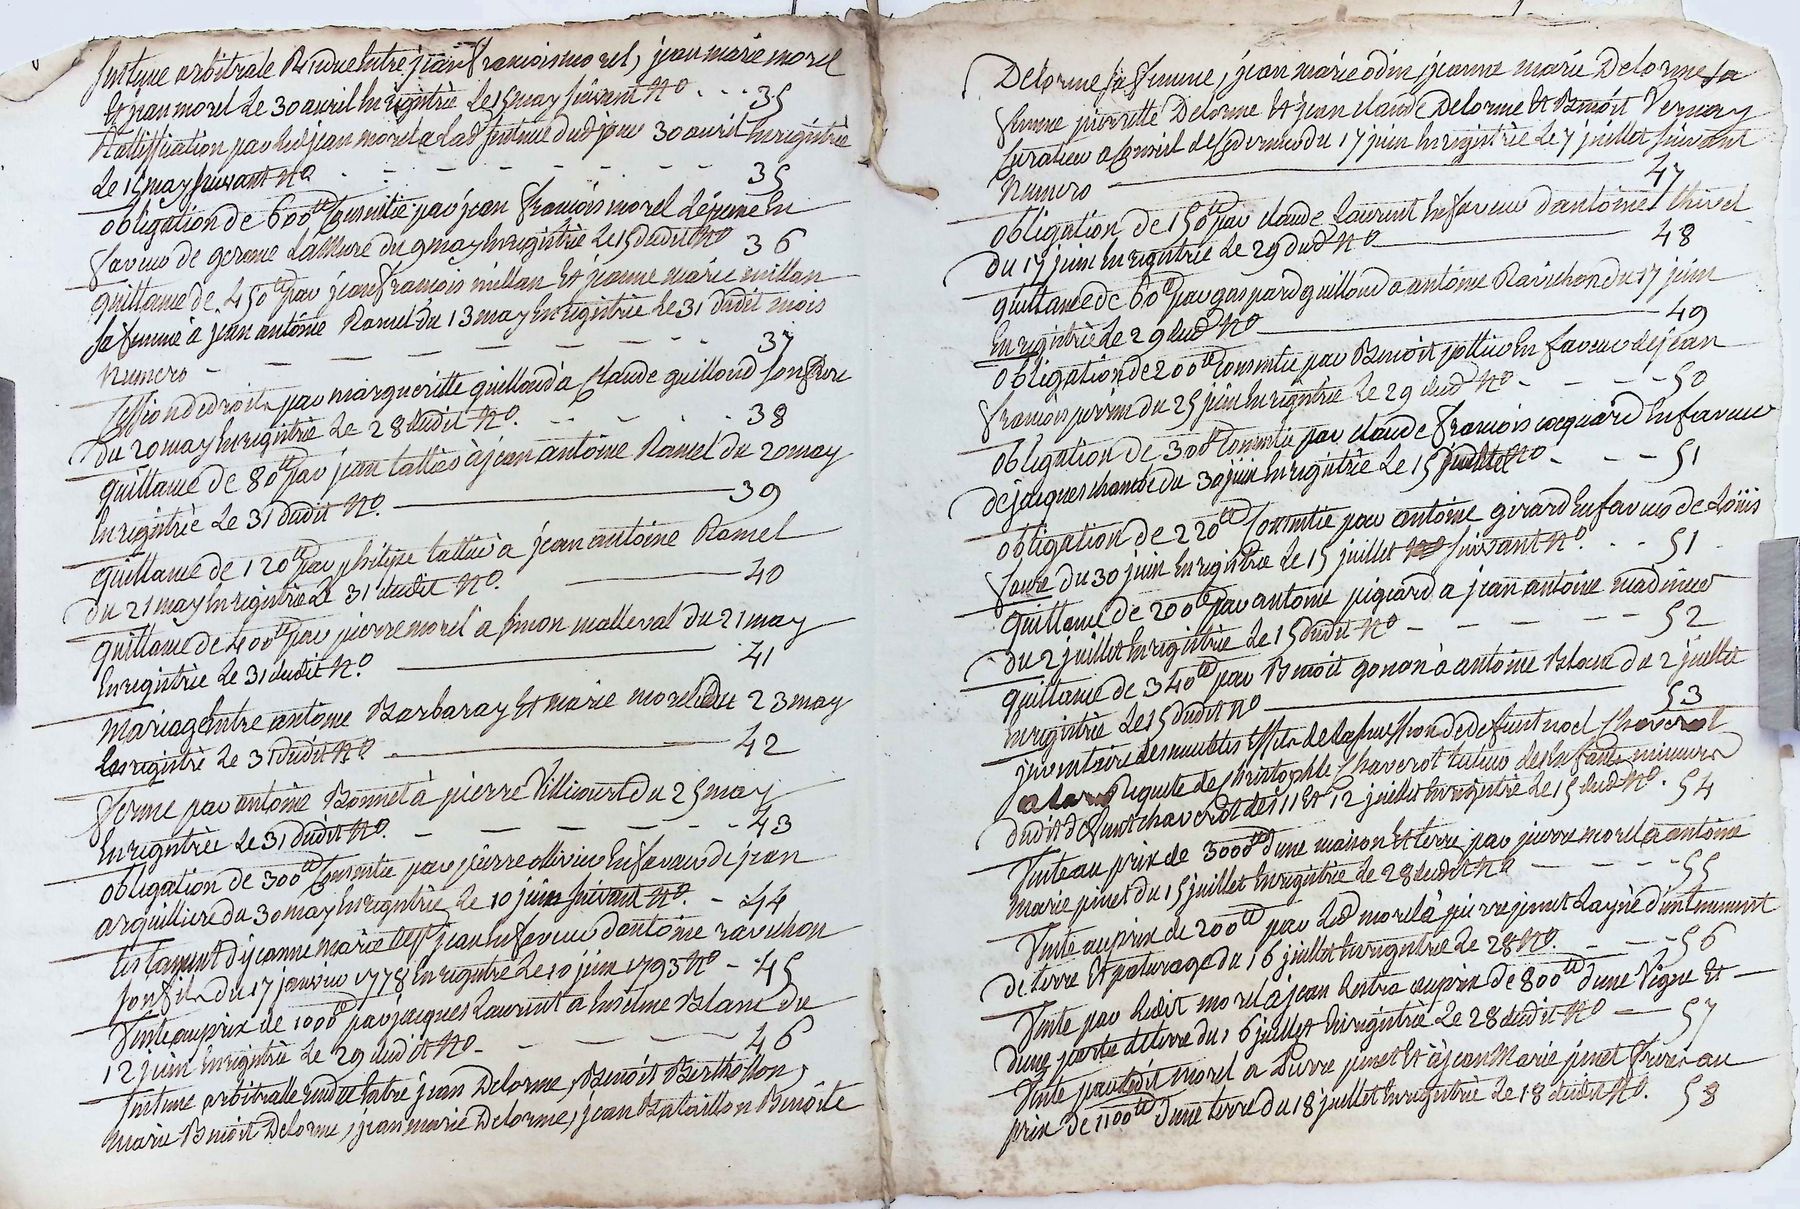 Sentence arbitrale Rendue Entre jean François morel, jean marie morel
Et jean morel Le 30 avril Enregistrée Le 15 may suivant No - - - 35
Ratiffication par led jean morel a lad Sentence dud jour 30 avril Enregistrée
Le 15 may suivant No - - - - - - - 35
obligation de 600tt Consentie par jean François morel Lejeune En
faveur de gerome Lamure du 9 may Enregistrée Le 15 dudit No 36
quittance de 450tt par jean François millan Et jeanne marie millan
sa femme à jean antoine Ramel du 13 may Enregistrée Le 31 dudit mois
Numero - - - - - - - 37
Cession de droits par margueritte guilloud à Claude guilloud son frere
du 20 may Enregistrée Le 28 dudit No. - - - - 38
quittance de 80tt par jean tattier à jean antoine Ramel du 20 may
Enregistrée Le 31 dudit No. 39
quittance de 120tt par philipe tattier à jean antoine Ramel
du 21 may Enregistrée Le 31 dudit No. 40
quittance de 400tt par pierre morel à simon malleval du 21 may
Enregistrée Le 31 dudit No. 41
Mariage Entre antoine Barbaray Et marie morel du 23 may
Enregistré Le 31 dudit No 42
ferme par antoine Bonnet à pierre Villicourt du 25 may
Enregistrée Le 31 dudit No. - - - - - - 43
obligation de 300tt Consentie par pierre ollivier En faveur de jean
arquilliere du 30 may Enregistrée Le 10 juin suivant No. - 44
testament de jeanne marie jean En faveur d'antoine ravichon
son fils du 17 janvier 1778 Enregistré Le 10 juin 1793 No - 45
Vente au prix de 1000tt par jacques Laurent a Blanc du
12 juin Enregistrée Le 29 dudit No - - - 46
Sentence arbitralle rendue Entre jean Delorme, Benoit Berthollon,
marie Benoit Delorme, jean marie Delorme, jean Bataillon Benoîte
Delorme sa femme, jean marie odin, jeanne marie Delorme sa
femme pierrette Delorme Et jean claude Delorme Et Benoit Vernay
Curateur a Conseil de du 17 juin Enregistrée Le 7 juillet suivant
Numero 47
obligation de 150tt par claude Laurent En faveur d'antoine thivel
du 17 juin Enregistrée Le 29 dud No 48
quittance de 60tt par gaspard guilloud a antoine Ravichon du 17 juin
Enregistrée Le 29 dud No 49
obligation de 200tt Consentie par Benoit pottier En faveur de jean
françois perrin du 25 juin Enregistrée Le 29 dud No - - - - 50
obligation de 300tt Consentie par claude françois coquard En faveur
de jacques chambe du 30 juin Enregistrée Le 15 juillet No - - - 51
obligation de 220tt Consentie par antoine girard En faveur de Loüis
favre du 30 juin Enregistrée Le 15 juillet suivant No. - - 51
quittance de 200tt par antoine pigiard a jean antoine madinier
du 2 juillet Enregistrée Le 15 dudit No - - - - - 52
quittance de 340tt par Benoit gonon à antoine Blanc du 2 juillet
Enregistrée Le 15 dudit No 53
jnventaire des meubles Effets de la succession de defunt noel Chaverot
a la Requete de Christophle Chaverot tuteur des Enfants mineurs
dudit defunt chaverot des 11 Et 12 juillet Enregistré Le 15 dud No. 54
Vente au prix de 3000tt d'une maison Et terre par pierre morel a antoine
marie pinet du 15 juillet Enregistrée Le 28 dudit No - - - - 55
Vente au prix de 200tt par Led morel à pierre pinet Layné d'un tenement
de terre Et paturage du 16 juillet Enregistrée Le 28 No. - - - 56
Vente par Ledit morel à jean au prix de 800tt d'une Vigne Et
d'une partie de terre du 16 juillet Enregistrée Le 28 dudit No 57
Vente par Ledit morel a Pierre pinet Et à jean Marie pinet freres au
prix de 1100tt d'une terre du 18 juillet Enregistrée Le 18 dudit No. 58